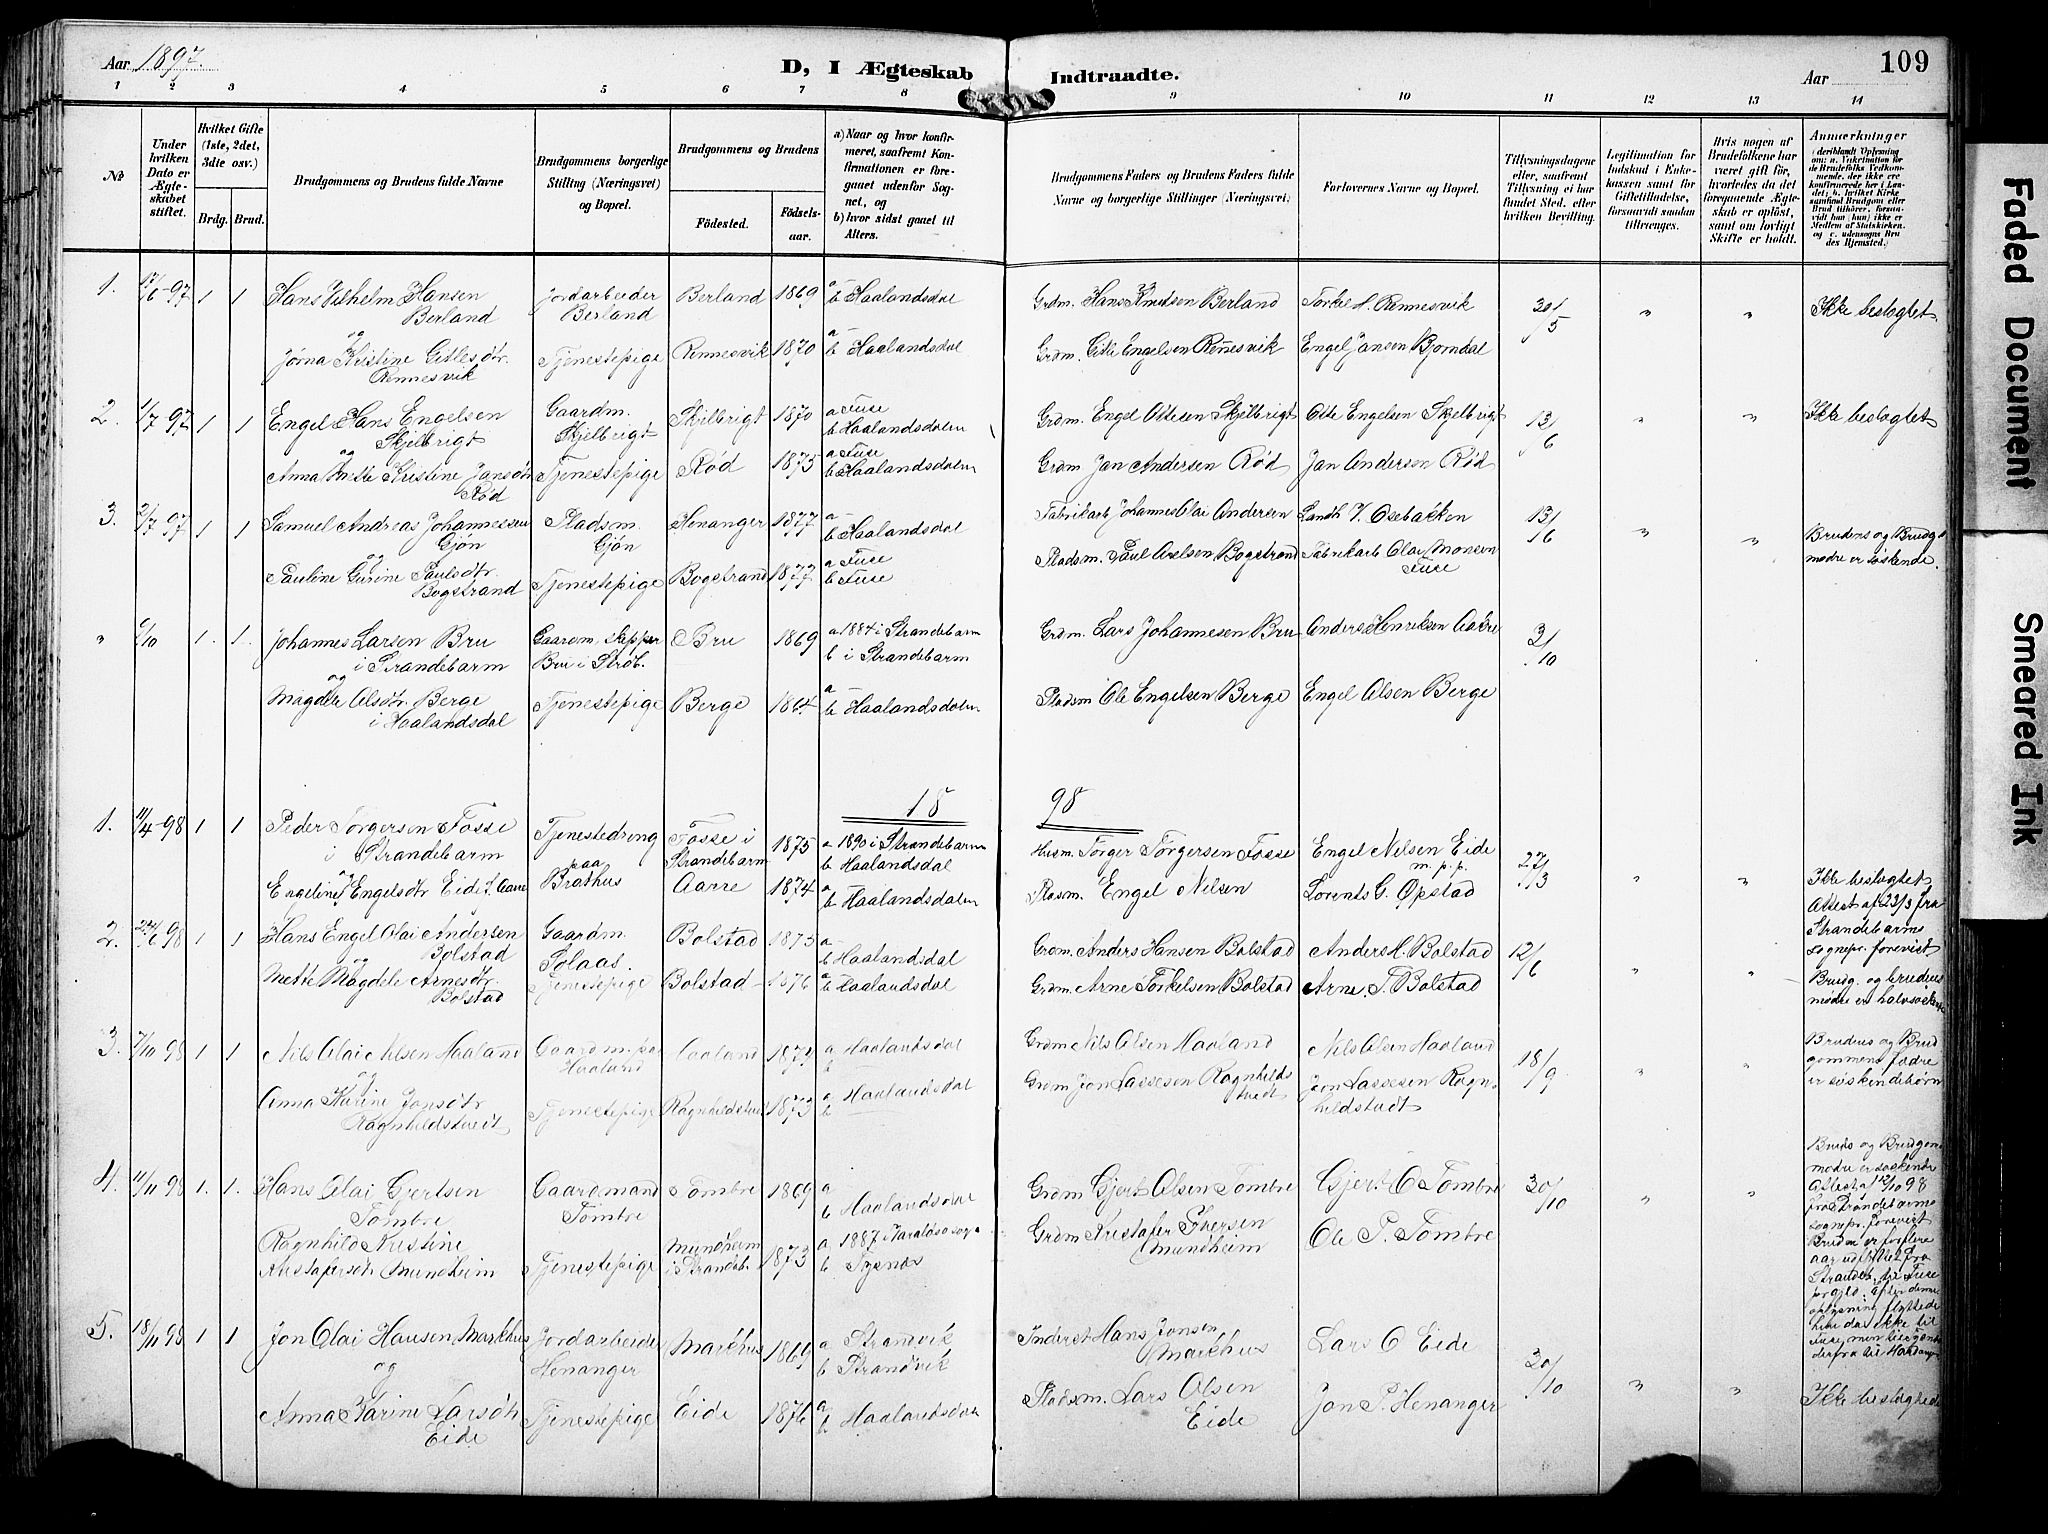 Aar 1897.
D, I Ægteskab Indtraadte.
Aar
109
1 2 3 4 5 6 7 8 9 10 11 12 13 14
No
Under hvilken Dato er Ægteskabet stiftet.
Hvilket Gifte (1ste, 2det, 3die osv.)
Brdg. Brud.
Brudgommens og Brudens fulde Navne
Brudgommens borgerlige Stilling (Næringsvei) og Bopæl.
Brudgommens og Brudens
Födested.
Födsels-aar.
a) Naar og hvor konfirmeret, saafremt Konfirmationen er foregaaet udenfor Sognet, og
b) hvor sidst gaaet til Alters.
Brudgommens Faders og Brudens Faders fulde Navne og borgerlige Stillinger (Næringsvei).
Forlovernes Navne og Bopæl.
Tillysningsdagene eller, saafremt Tillysning ei har fundet Sted, efter hvilken Bevilling.
Legitimation for Indskud i Enkekassen samt for Giftetilladelse, forsaavidt saadan tiltrænges.
Hvis nogen af Brudefolkene har været gift för, hvorledes da det foregaaende Ægteskab er oplöst, samt om lovligt Skifte er holdt.
Anmærkninger
1. 17/6-97 1 1 Hans Vilhelm Hansen Berland Jordarbeider Berland Berland 1869 a – b Haalandsdal Grdm. Hans Knudsen Berland Torkel H. Rennesvik 30/5 " " Ikke beslegtet.
og
Jørna Kristine Gitlesdtr. Rennesvik Tjenestepige Rennesvik 1870 a – b Haalandsdal Grdm. Gitle Engelsen Rennesvik Engel Jansen Bjorndal
2. 1/7-97 1 1 Engel Hans Engelsen Skjelbrigt Gaardm. Skjelbrigt Skjelbrigt 1870 a Fuse b Haalandsdalen Grdm. Engel Ottesen Skjelbrigt Otte Engelsen Skjelbrigt 13/6 " " Ikke beslegtet
og
Anna Mette Kristine Jansdtr Rød Tjenestepige Rød 1875 a Fuse b Haalandsdalen Grdm Jan Andersen Rød Jan Andersen Rød
3. 2/7-97 1 1 Samuel Andreas Johannessen Gjøn Pladsm. Gjøn Henanger 1877 a – b Haalandsdal Fabrikarb Johannes Olai Andersen Landh. V. Osebakken 13/6 " " Brudens og Brudg. mødre er søskende.
og
Pauline Gurine Paulsdtr. Bogstrand Tjenestepige Bogstrand 1877 a Fuse b Fuse Pladsm. Paul Axelsen Bogstrand Fabrikarb Olai Monsen Fuse
" 6/10 1. 1. Johannes Larsen Bru i Strandebarm Gaardm. skipper Bru i Strdb. Bru 1869 a 1884 i Strandebarm b i Strandebarm Grdm. Lars Johannesen Bru Anders Henriksen Aakre 3/10
og
Magdele Olsdtr. Berge i Haalandsdal Tjenestepige Berge 1864 a – b Haalandsdalen Pladsm Ole Engelsen Berge Engel Olsen Berge
18 98
1. 11/4-98 1 1 Peder Torgersen Fosse i Strandebarm Tjenestedreng paa Brathus Fosse i Strandebarm 1875 a 1890 i Strandebarm b Haalandsdal Husm. Torger Torgersen Fosse Engel Nelsen Eide m. p. p. 27/3 " " Ikke beslegtet
og
Engeline Engelsdtr Eide f. Aarre Aarre 1874 a – b Haalandsdalen Pladsm. Engel Nelsen Lorents G. Opstad Attest af 23/3 fra Strandebarms sognepr. forevist
2. 24/6 98 1 1 Hans Engel Olai Andersen Bolstad Gaardm. Solaas. Bolstad 1875 a – b Haalandsdal Grdm. Anders Hansen Bolstad Anders H. Bolstad 12/6 " " Brudg. og brudens mødre er halvsøskende
og
Mette Magdele Arnesdtr. Bolstad Tjenestepige Bolstad 1876 a – b Haalandsdal Grdm. Arne Torkelsen Bolstad Arne. T. Bolstad
3. 7/10 98 1 1 Nils Olai Nilsen Haaland Gaardm. paa Haaland Haaland 1874 a b Haalandsdal Grdm Nils Olsen Haaland Nils Olsen Haaland 18/9 " " Brudens og Brudgommens fædre er søskendebørn
og
Anna Karine Jonsdtr Ragnhildstveit Tjenestepige Ragnhildstveit 1873 a b Haalandsdal Grdm Jon Lassesen Ragnhildstvedt Jon Lassesen Ragnhildstvedt
4. 11/11 98 1. 1. Hans Olai Gjertsen Tombre Gaardmand Tombre Tombre 1869 a b Haalandsdal Grdm Gjert Olsen Tombre Gjert O Tombre 30/10 " " Bruds og Brudgoms mødre er søskende Attest af 12/10 98 fra Strandebarms sognepr. forevist
Ragnhild Kristine Kristafersdtr Mundheim Tjenestepige Mundheim i Strandeb. 1873 a 1887 i Varaldsø sogn b Tysnes Grdm Kristafer Iversen Mundheim Ole P. Tombre Bruden er for flere aar udflyttet fra Strandeb. til Fuse prgjld. Efter denne oplysning flyttede hun da ikke til Fuse, men hiergientderfra til Hardanger
5. 18/11 98 1 1 Jon Olai Hansen Markhus Jordarbeider Henanger Markhus 1869 a Strandvik b Strandvik Inderst Hans Jonsen Markhus Lars O Eide 30/10 " " Ikke beslegtede
og
Anna Karine Larsdtr Eide Tjenestepige Eide 1876 a b Haalandsdalen Pladsm. Lars Olsen Eide Jon P. Henanger
Faded Document
Smeared Ink